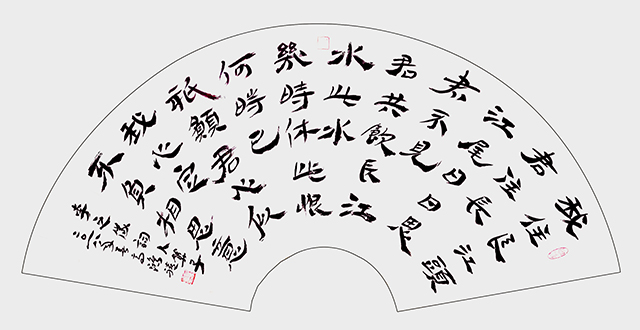 我住長江頭
君住長
江尾日日思
君不見
君共飲長江
水此水
幾時休此恨
何時已
祇願君心似
我心定
不負相思意
李之儀詞
二〇一八年